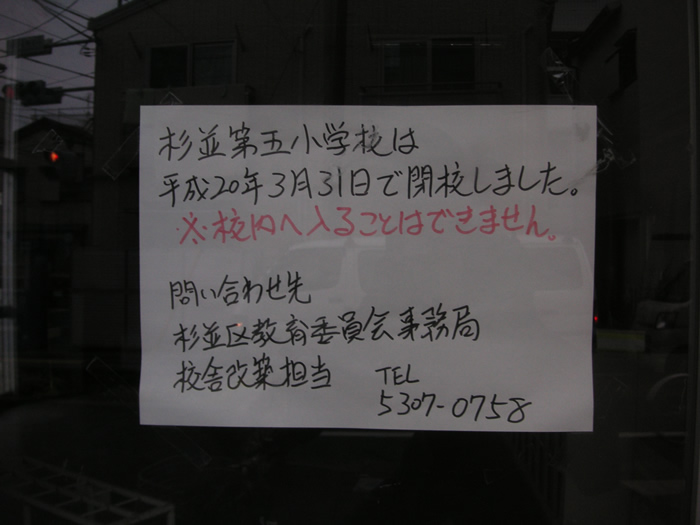 杉並第五小学校は
平成20年3月31日で閉校しました。
※校内へ入ることはできません。
問い合わせ先
杉並区教育委員会事務局
校舎改築担当 TEL
5307-0758